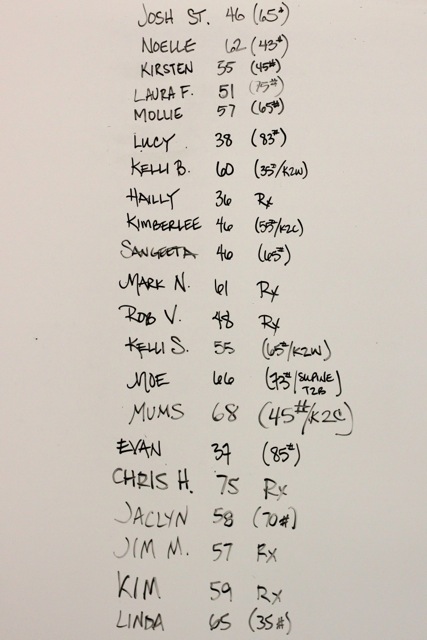 JOSH ST. 46 (65#)
NOELLE 62 (43#)
KIRSTEN 55 (45#)
LAURA F. 51 (75#)
MOLLIE 57 (65#)
LUCY 38 (83#)
KELLI B. 60 (35#/K2W)
HAILLY 36 Rx
KIMBERLEE 46 (55#/K2C)
SANGEETA 46 (65#)
MARK N. 61 Rx
ROB V. 48 Rx
KELLI S. 55 (65#/K2W)
MOE 66 (73#/SUPINE T2B)
MUMS 68 (45#/K2C)
EVAN 37 (85#)
CHRIS H. 75 Rx
JACLYN 58 (70#)
JIM M. 57 Rx
KIM 59 Rx
LINDA 65 (35#)